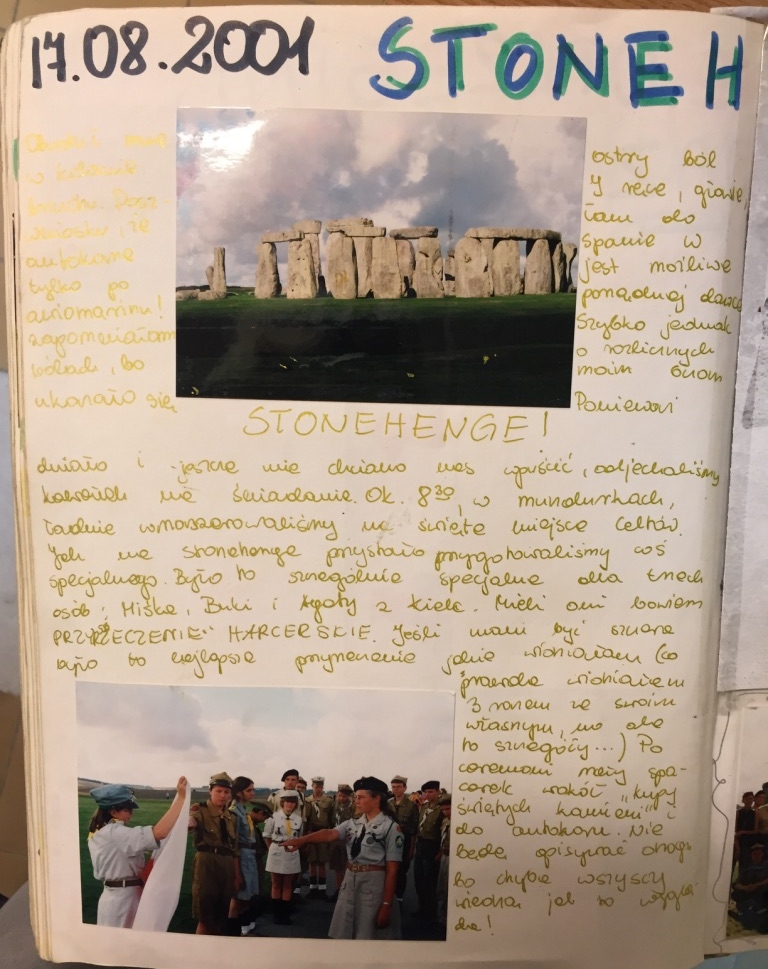 17.08.2001 STONEH
Obudził mnie ostry ból
w kolanie. I ręce, głowie,
krzyżu. Dosz tam do
wniosku, że spanie w
autokarze jest możliwe
tylko po porządnej dawce
aviomarinu! Szybko jednak
zapomniałam o rozlicznych
bólach, bo moim oczom
ukazało się Ponieważ
STONEHENGE!
dniało i jeszcze nie chciano nas wpuścić, odjechaliśmy
kawałek na śniadanie. Ok. 8³⁰, w mundurkach,
ładnie wmaszerowaliśmy na święte miejsce Celtów.
Jak na stonehenge przystało przygotowaliśmy coś
specjalnego. Było to szczególnie specjalne dla trzech
osób: Miśka, Buki i Agaty z Kielc. Mieli oni bowiem
PRZYRZECZENIE HARCERSKIE. Jeśli mam być szczera
było to najlepsze przyrzeczenie jakie widziałam (co
prawda widziałam
3 razem ze swoim
własnym, no ale
to szczegóły...) Po
ceremonii mały spa-
cerek wokół "kupy
świętych kamieni" i
do autokaru. Nie
będę opisywać drogi
bo chyba wszyscy
wiedzą jak to wygląd-
da!